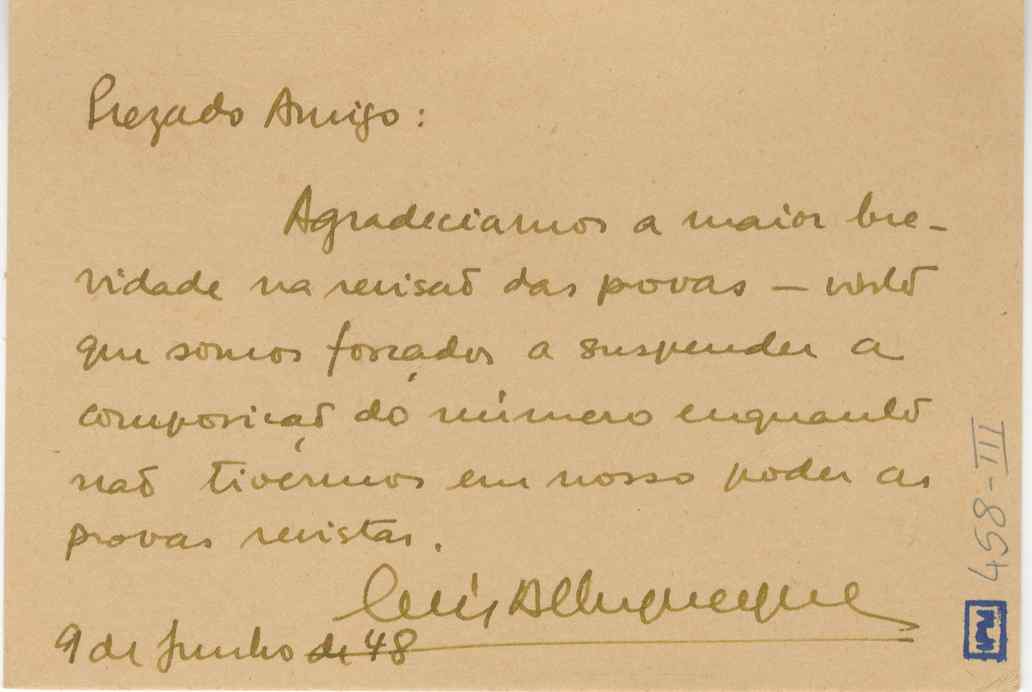 Prezado Amigo:
Agradeciamos a maior bre-
vidade na revisaõ das provas – visto
que somos forçados a suspender a
composiçaõ do número enquanto
naõ tivérmos em nosso poder as
provas revistas.
Luís Albuquerque
9 de Junho de 48
458-III